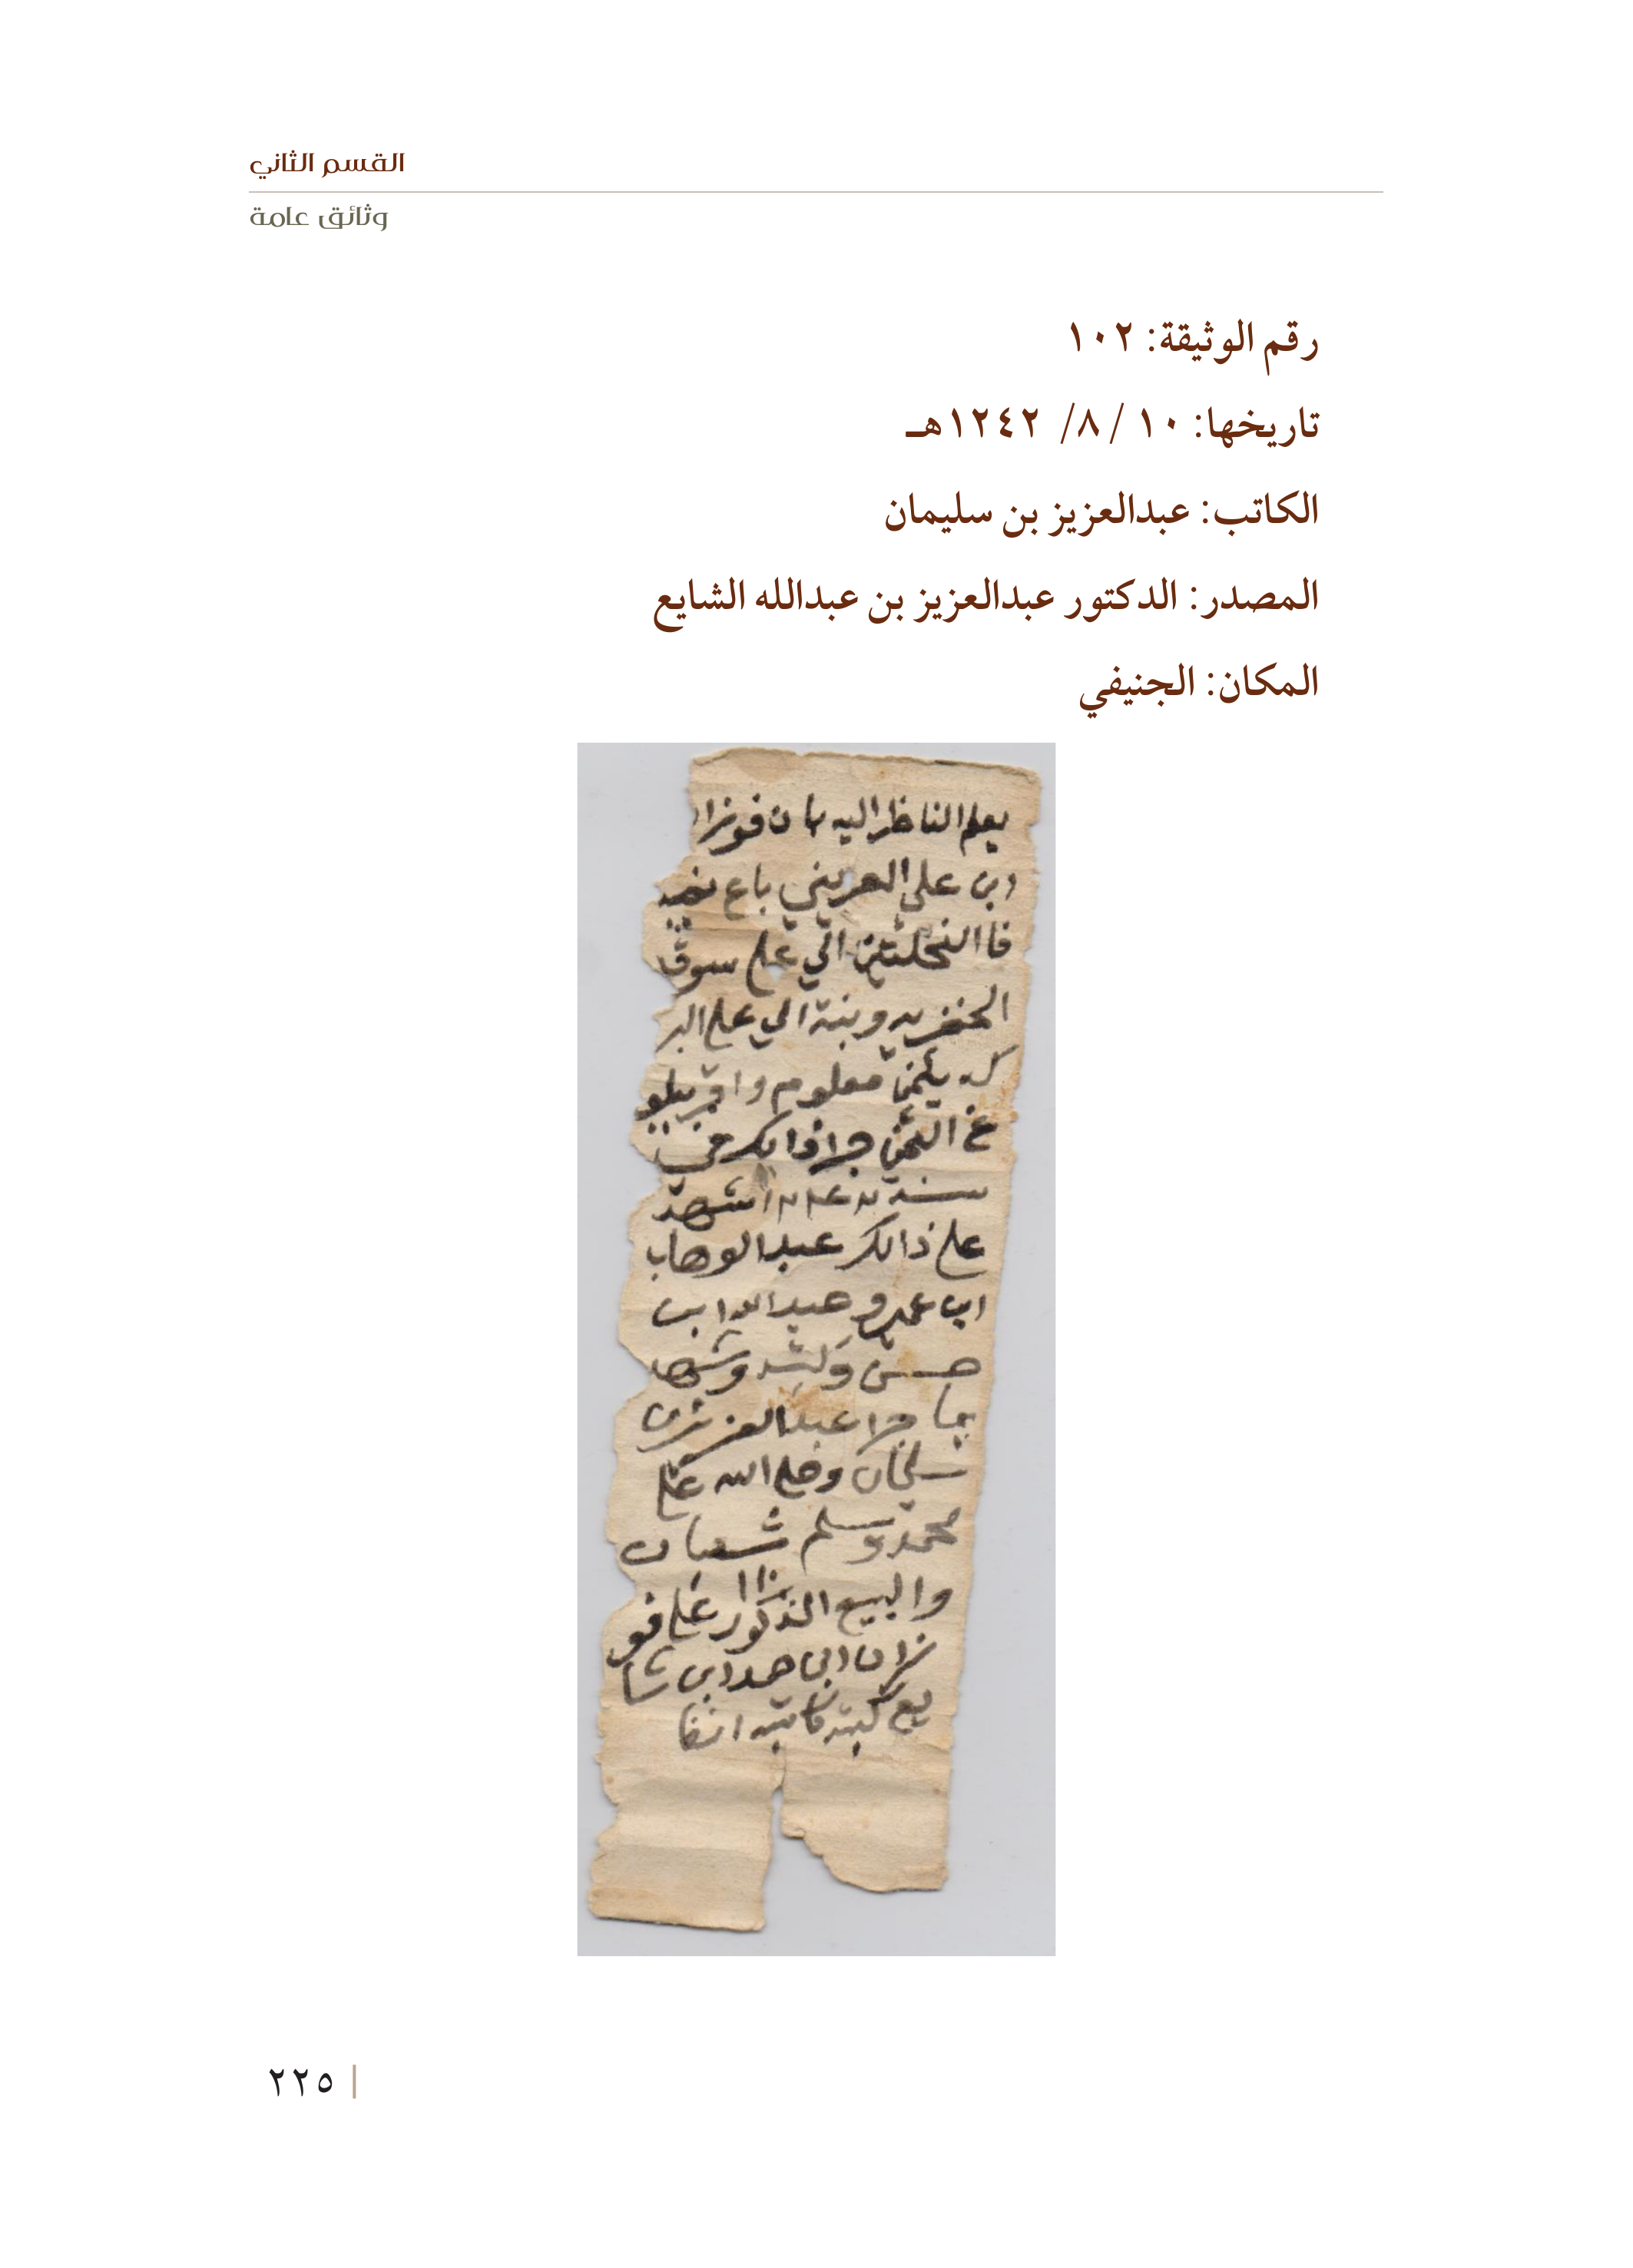 القسم الثاني
وثائق عامة
رقم الوثيقة: ١٠٢
تاريخها: ١٠ /٨/ ١٢٤٢هـ
الكاتب: عبدالعزيز بن سليمان
المصدر: الدكتور عبدالعزيز بن عبدالله الشايع
المكان: الجنيفي
يعلم الناظر اليه بان فوزا
ابن علي العريني باع
فا النخلتين التي على سوق
وبنة الي على البر
كه بثمن معلوم واقر ببلو
غ الثمن جرا ذالك في
سنة ١٢٤٢ شهد
على ذالك عبدالوهاب
ابن وعبدالله ابن
وشهد
بما جرا عبدالعزيز بن
سليمان وصلى الله على
محمد وسلم شعبان
والبيع المذكور على فو
زان ابن حمد ابن شا
يع كتبه كاتبه
٢٢٥